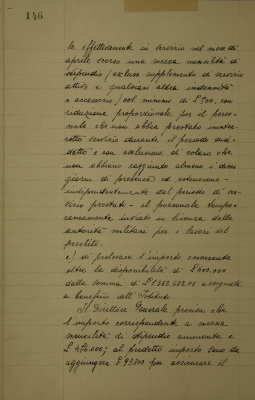 146
le effettivamente in servizio nel mese di
aprile scorso una mezza mensilità di
stipendio (escluso supplemento di servizio
attivo e qualsiasi altra indennità
o accessorio) col minimo di £ 500, con
riduzione proporzionale per il perso-
nale che non abbia prestato ininter-
rotto servizio durante il periodo sud-
detto e con esclusione di coloro che
non abbiano raggiunto almeno i dieci
giorni di presenza ed estensione -
indipendentemente dal periodo di ser-
vizio prestato - al personale tempo-
raneamente inviato in licenza dalle
autorità militari per i lavori del
prestito.
c) di prelevare l'importo occorrente
oltre la disponibilità di £ 600.000
dalla somma di £ 1.363.562.05 assegnata
a beneficio dell'Istituto.
Il Direttore Generale precisa che
l'importo corrispondente a mezza
mensilità di stipendio ammonta a
£ 476.000; al predetto importo sono da
aggiungere £ 93.000 per assicurare il